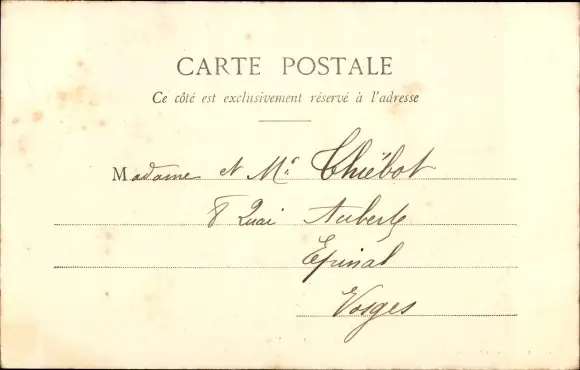 CARTE POSTALE
Ce côté est exclusivement réservé à l'adresse
Madame et Mr Thiébot
8 Quai
Epinal
Vosges